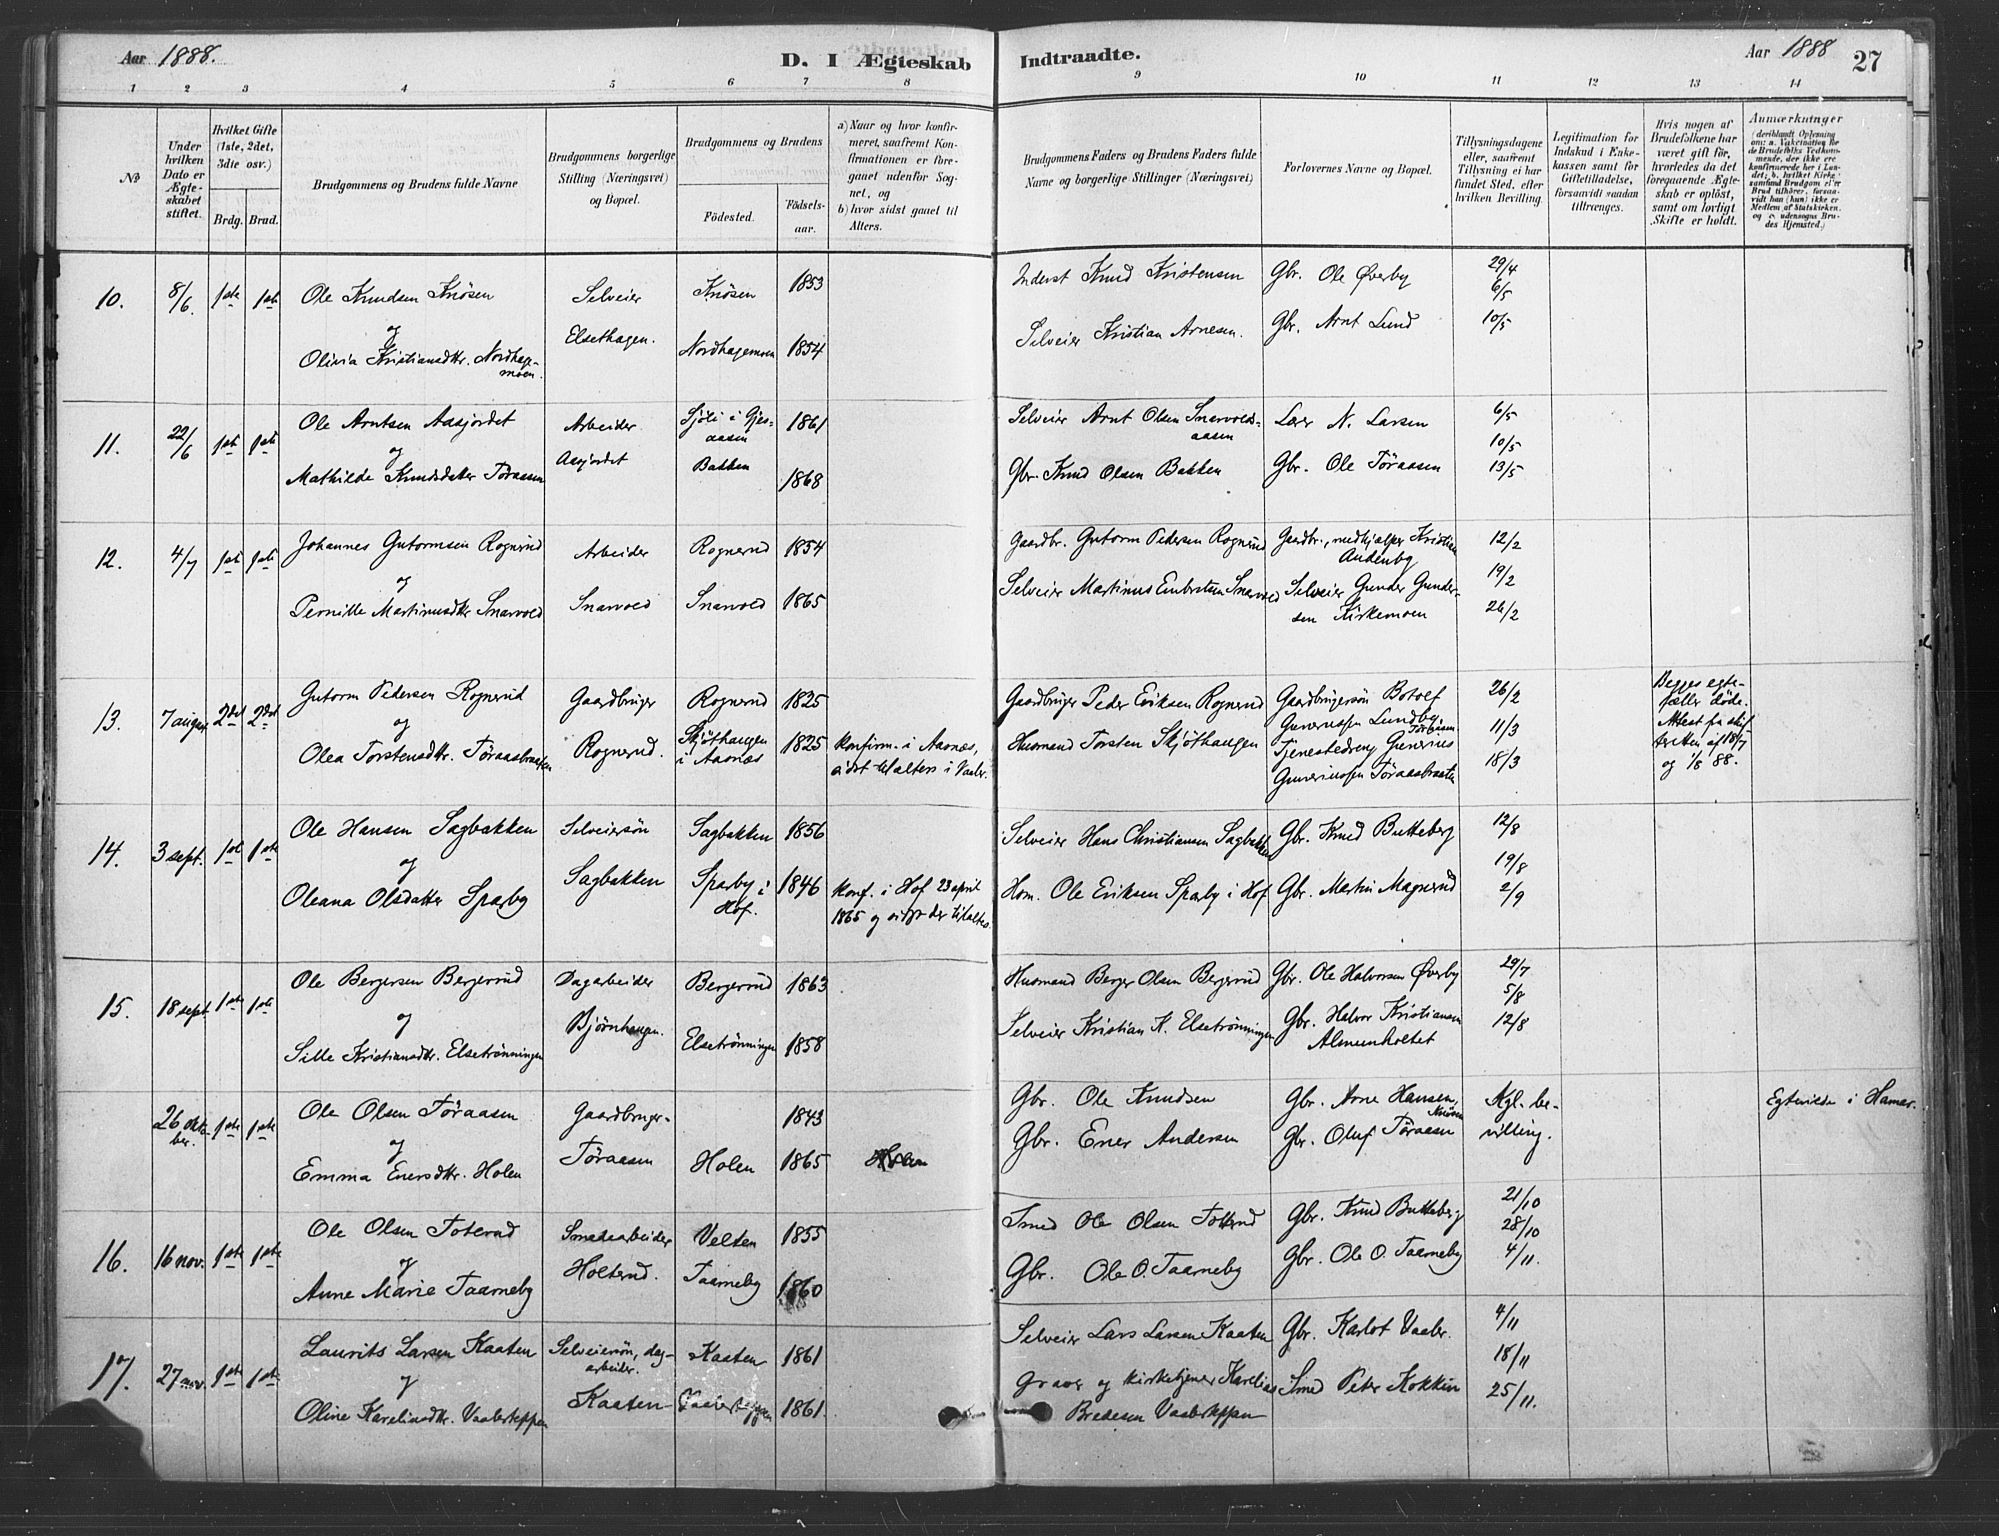 Aar 1888.
D. I Ægteskab
Indtraadte.
Aar 1888
27
1 2 3 4 5 6 7 8 9 10 11 12 13 14
No
Under hvilken Dato er Ægteskabet stiftet.
Hvilket Gifte (1ste, 2det, 3die osv.)
Brdg. Brud.
Brudgommens og Brudens fulde Navne
Brudgommens borgerlige Stilling (Næringsvei) og Bopæl.
Brudgommens og Brudens
Födested.
Födselsaar.
a) Naar og hvor konfirmeret, saafremt Konfirmationen er foregaaet udenfor Sognet, og
b) hvor sidst gaaet til Alters.
Brudgommens Faders og Brudens Faders fulde Navne og borgerlige Stillinger (Næringsvei)
Forlovernes Navne og Bopæl.
Tillysningsdagene eller, saafremt Tillysning ei har fundet Sted, efter hvilken Bevilling.
Legitimation for Indskud i Enkekassen samt for Giftetilladelse, forsaavidt saadan tiltrænges.
Hvis nogen af Brudefolkene har været gift för, hvorledes da det foregaaende Ægteskab er oplöst, samt om lovligt Skifte er holdt.
Anmærkninger
(deriblandt Oplysning om: a. Vakcination for de Brudefolks Vedkommende, der ikke ere konfirmerede her i Landet; b. hvilket Kirkesamfund Brudgom el'er Brud tilhörer, forsaavidt han (hun) ikke er Medlem af Statskirken, og c. udensogns Brudes Hjemsted.)
10. 8/6 1ste 1ste Ole Knudsen Knösen
og
Olivia Kristiansdtr. Nordhagemoen.
Selveier
Elsethagen.
Knösen 1853
Nordhagemoen 1854
Inderst Knud Kristensen
Selveier Kristian Arnesen.
Gbr. Ole Øverby
Gbr. Arnt Lund
29/4
6/5
10/5
11. 22/6 1ste 1ste Ole Arntsen Aasjordet
og
Mathilde Knudsdatter Töraasen
Arbeider
Aasjordet
Sjöli i Gjesaasen 1861
Bakken 1868
Selveier Arnt Olsen Snarvoldsaasen
Gbr. Knud Olsen Bakken
Lærer N. Larsen
Gbr. Ole Töraasen
6/5
10/5
13/5
12. 4/7 1ste 1ste Johannes Gutormsen Rognerud
og
Pernille Martinusdtr Snarvold
Arbeider
Snarvold
Rognerud 1854
Snarvold 1865
Gaardbr. Gutorm Pedersen Rognerud
Selveier Martinus Embretsen Snarvold
Gaardbr., medhjælper Kristian Audenby
Selveier Gunder Gundersen Kirkemoen
12/2
19/2
26/2
13. 7 august 2det 2det Gutorm Pedersen Rognerud
og
Olea Torstensdtr. Töraasbraaten
Gaardbruger
Rognerud.
Rognerud 1825
Skjöthaugen i Aasnæs 1825
Konfirm. i Aasnæs, sidst til alters i Vaaler.
Gaardbruger Peder Eriksen Rognerud
Husmand Torsten Skjöthaugen
Gaardbrugersön Botolf Gunerussen Lundby
Tjenestedreng Gunerius Gunerinssen Töraasbraaten
26/2
11/3
18/3
Begges egtefæller döde. Attest fra skifteretten af 18/7 og 1/8 88.
14. 3 sept. 1ste 1ste Ole Hansen Sagbakken
og
Oleana Olsdatter Sparby
Selveiersön
Sagbakken
Sagbakken 1856
Sparby i Hof. 1846
Konf. i Hof 23 april 1865 og sidst der til alters.
Selveier Hans Christiansen Sagbakken
Hsm. Ole Eriksen Sparby i Hof
Gbr. Knud Butteberg
Gbr. Martin Magnerud
12/8
19/8
2/9
15. 18 sept 1ste 1ste Ole Bergersen Bergerud
og
Sille Kristiansdtr. Elsetrönningen
Dagarbeider
Bjørnhaugen.
Bergerud 1863
Elsetrönningen 1858
Husmand Berger Olsen Bergerud
Selveier Kristian K. Elsetrönningen
Gbr. Ole Halvorsen Øverby
Gbr. Halvor Kristiansen Almenholtet
29/7
5/8
12/8
26 oktober. 1ste 1ste Ole Olsen Töraasen
og
Emma Enersdtr. Holen
Gaardbruger
Töraasen
1843
Holen 1865
Gbr. Ole Knudsen
Gbr. Ener Andersen
Gbr. Arne Hansen, Knösen
Gbr. Oluf Töraasen
Kgl. bevilling.
Egteviede i Hamar.
16. 16 nov. 1ste 1ste Ole Olsen Toterud
og
Anne Marie Taarneby
Smedarbeider
Holterud.
Velten 1855
Taarneby 1860
Smed Ole Olsen Toterud
Gbr. Ole O. Taarneby
Gbr. Knud Butteberg
Gbr. Ole O. Taarneby
21/10
28/10
4/11.
17. 27 nov. 1ste 1ste Laurits Larsen Kaaten
og
Oline Karelinsdtr. Vaalerkeppen
Selveiersön, dagarbeider.
Kaaten
Kaaten 1861
Vaalerkeppen 1861.
Selveier Lars Larsen Kaaten
Graver og kirketjener Karelius Bredesen Vaalerkeppen
Gbr. Karlot Vaaler.
Smed Peter Kokkin
4/11
18/11
25/11.